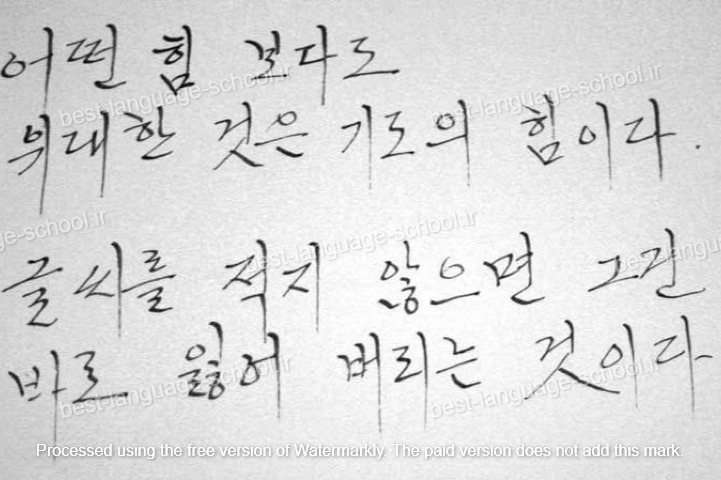 어떤 힘 보다도
위대한 것은 기도의 힘이다.
글씨를 적지 않으면 그건
바로 잃어 버리는 것이다
best-language-school.ir
best-language-school.ir
best-language-school.ir
best-language-school.ir
best-language-school.ir
best-language-school.ir
best-language-school.ir
Processed using the free version of Watermarkly. The paid version does not add this mark.